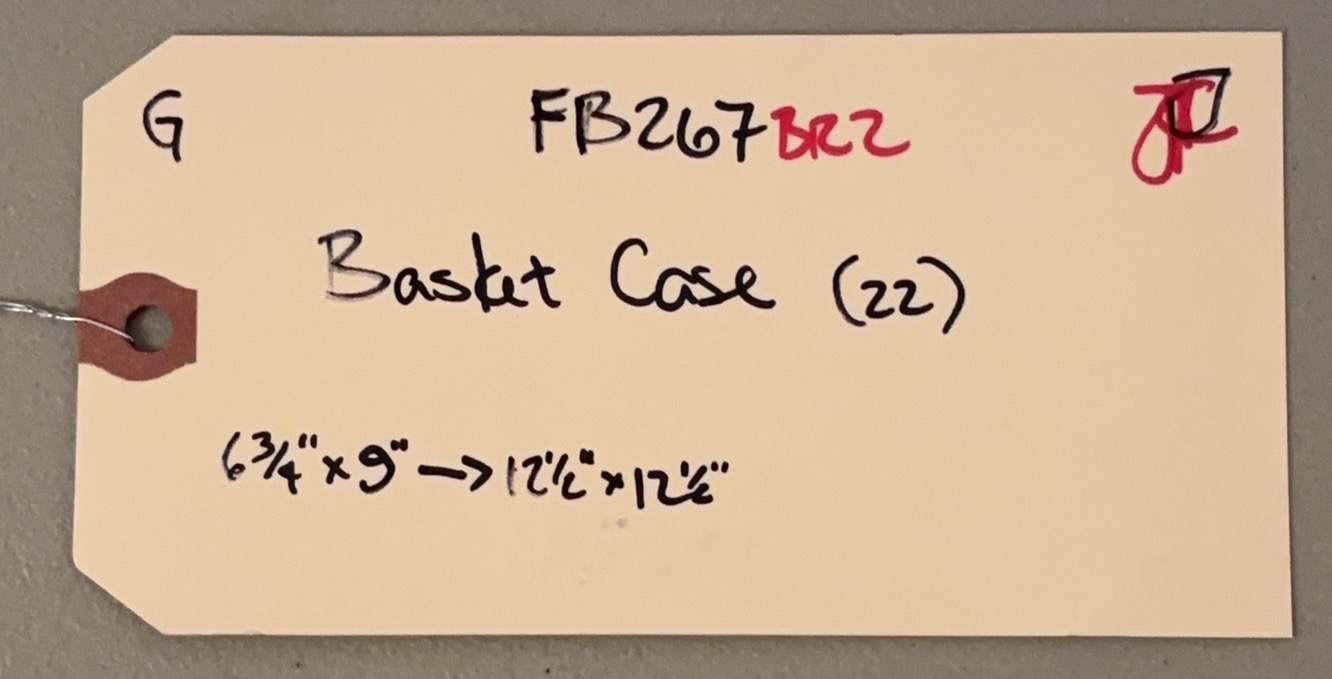 G FB267BR2
Basket Case (22)
6 3/4" x 9" → 12 1/2" x 12 1/2"